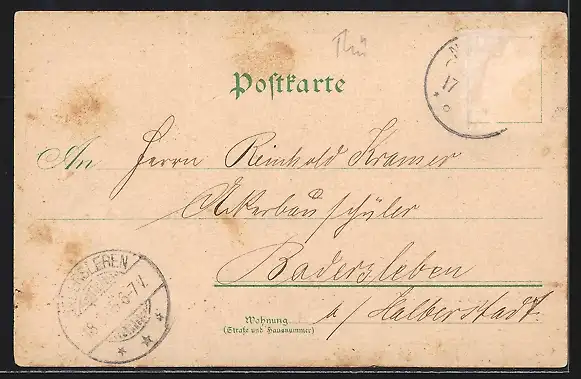 Thü
N
17
Postkarte
An Herrn Reinhold Kramer
Ackerbauschüler
Badersleben
a/ Halberstadt.
Wohnung
(Straße und Hausnummer)
SLEBEN
6-7